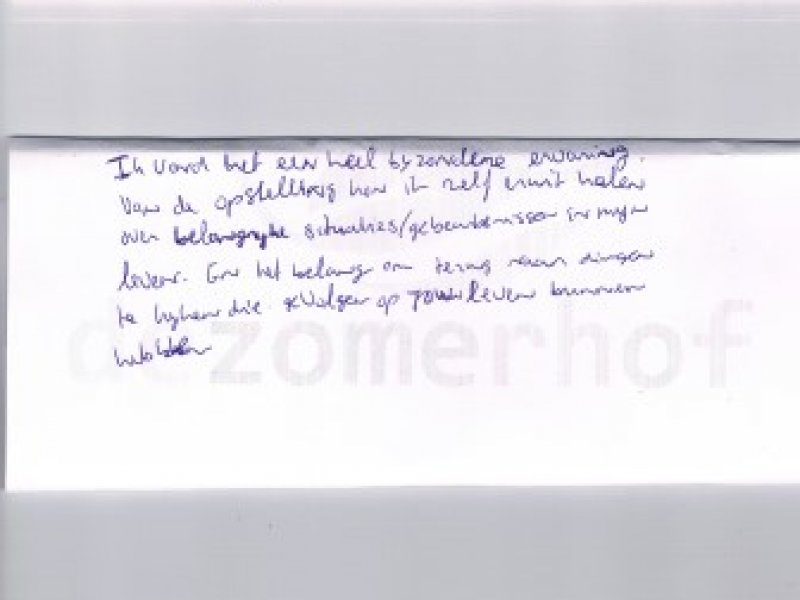 Ik vond het een heel byzondere ervaring.
Van de opstelling kon ik zelf eruit halen
over belangryke situaties/gebeurtenissen in myn
leven. En het belang om terug naar dingen
te kyken die gevolgen op jouw leven kunnen
hebben
dezomerhof